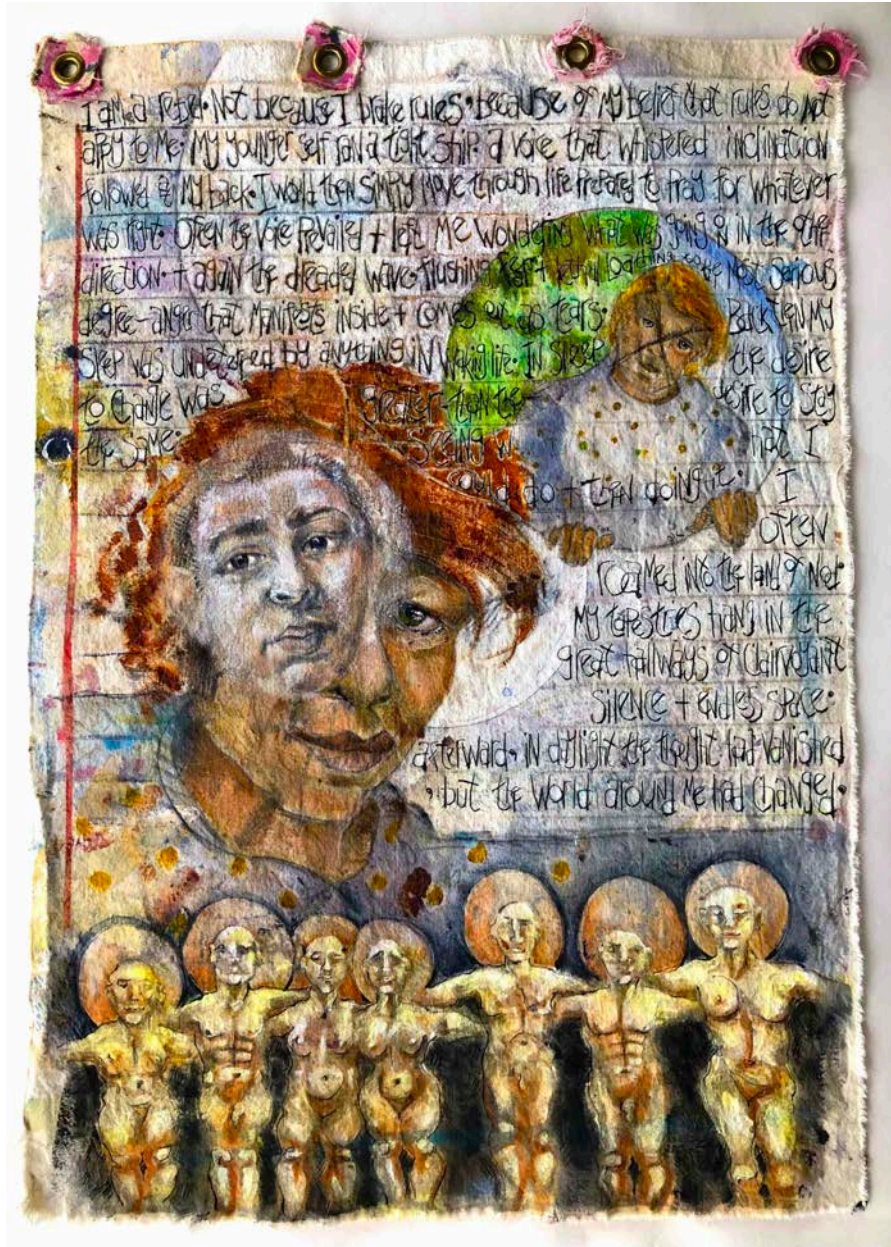 I am a rebel. Not because I brake rules. because of my belief that rules do not
appy to me. My younger self ran a tight ship. a voice that whispered inclination
followed @ my back. I would then simply move through life prepared to pray for whatever
was right. Often the voice prevailed + left me wondering what was going on in the other
direction. + again the dreaded wave. flushing loathing to the most serious
degree-anger that manifests inside + comes out as tears. Back then my
sleep was undeterred by anything in waking life. In sleep the desire
to change was greater than the desire to stay
the same. Seeing what I
could do + then doing it. I
often
roamed into the land of Not.
My tapestries hang in the
great hallways of clairvoyant
silence + endless space.
afterward. in daylight the thought had vanished
. but the world around me had changed.